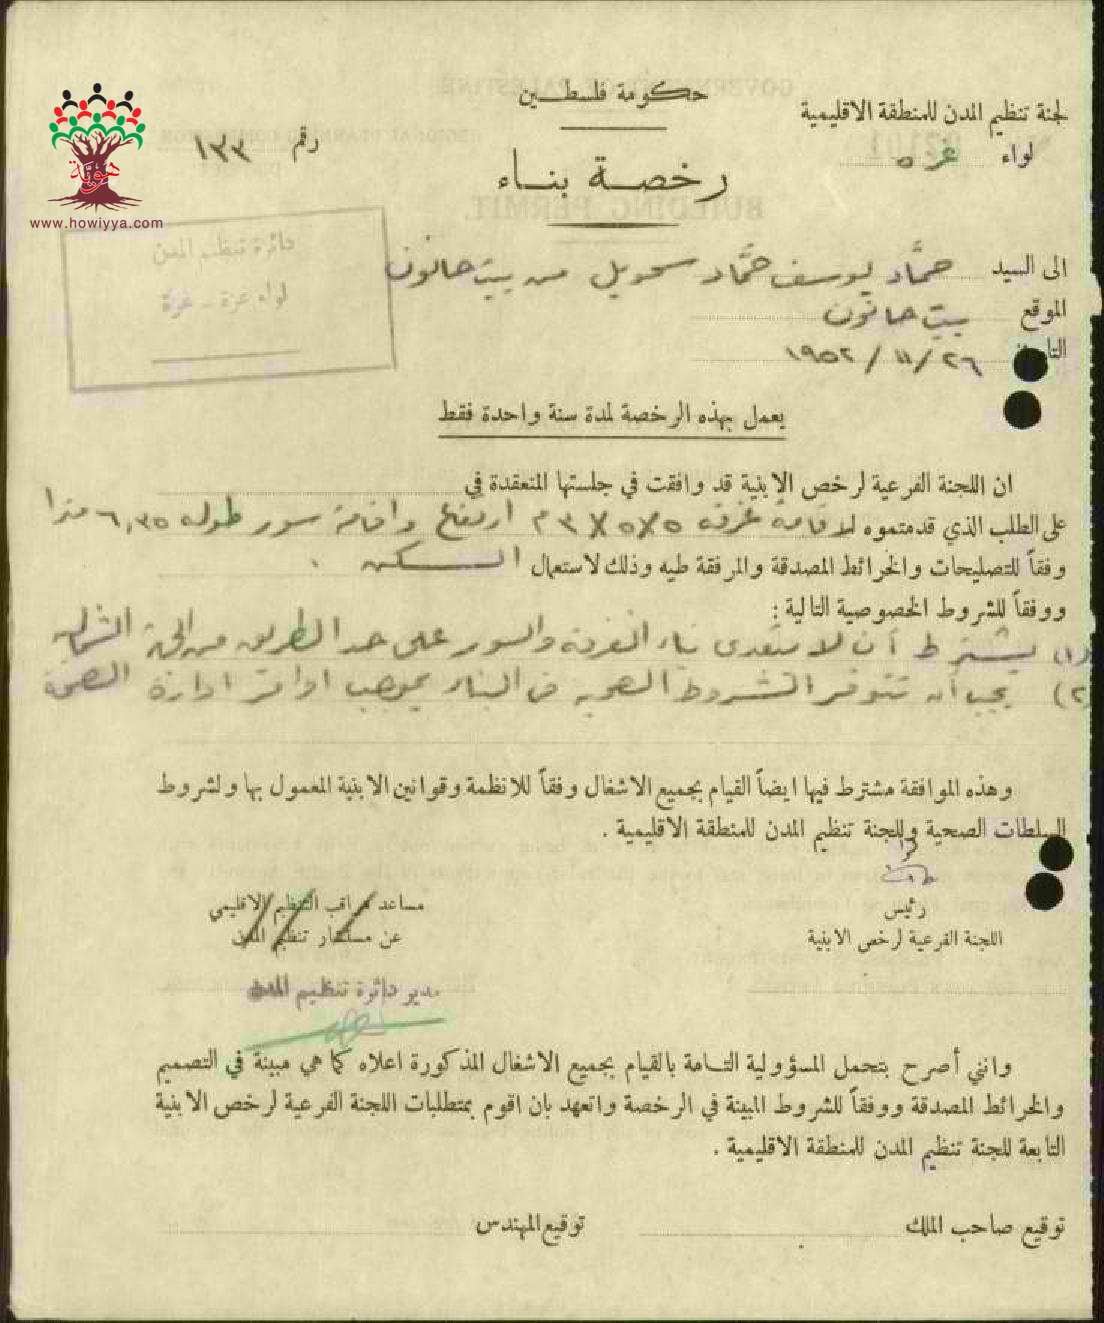 حكومة فلسطين
لجنة تنظيم المدن للمنطقة الاقليمية
لواء غزه
رقم ١٣٣
رخصة بناء
هوية
www.howiyya.com
دائرة تنظيم المدن
لواء غزة - غزة
الى السيد حمَّاد يوسف حمَّاد سحويل من بيت حانون
الموقع بيت حانون
التاريخ ٢٦ / ١١ / ١٩٥٢
يعمل بهذه الرخصة لمدة سنة واحدة فقط
ان اللجنة الفرعية لرخص الابنية قد وافقت في جلستها المنعقدة في
على الطلب الذي قدمتموه لاقامة غرفه ٥×٥×٣ م ارتفاع واقامة سور طوله ٦,٣٥ مترا
وفقاً للتصليحات والخرائط المصدقة والمرفقة طيه وذلك لاستعمال السكن .
ووفقاً للشروط الخصوصية التالية :
(١) يشترط أن لا يتعدى بناء الغرفة والسور على حد الطريق من الجهة الشمالية
(٢) يجب أن تتوفر الشروط الصحيه في البناء بموجب اوامر ادارة الصحة
وهذه الموافقة مشترط فيها ايضاً القيام بجميع الاشغال وفقاً للانظمة وقوانين الابنية المعمول بها ولشروط
السلطات الصحية وللجنة تنظيم المدن للمنطقة الاقليمية .
رئيس
اللجنة الفرعية لرخص الابنية
مساعد مراقب التنظيم الاقليمي
عن مستشار تنظيم المدن
مدير دائرة تنظيم المدن
وانني أصرح بتحمل المسؤولية التامة بالقيام بجميع الاشغال المذكورة اعلاه كما هي مبينة في التصميم
والخرائط المصدقة ووفقاً للشروط المبينة في الرخصة واتعهد بان اقوم بمتطلبات اللجنة الفرعية لرخص الابنية
التابعة للجنة تنظيم المدن للمنطقة الاقليمية .
توقيع صاحب الملك
توقيع المهندس